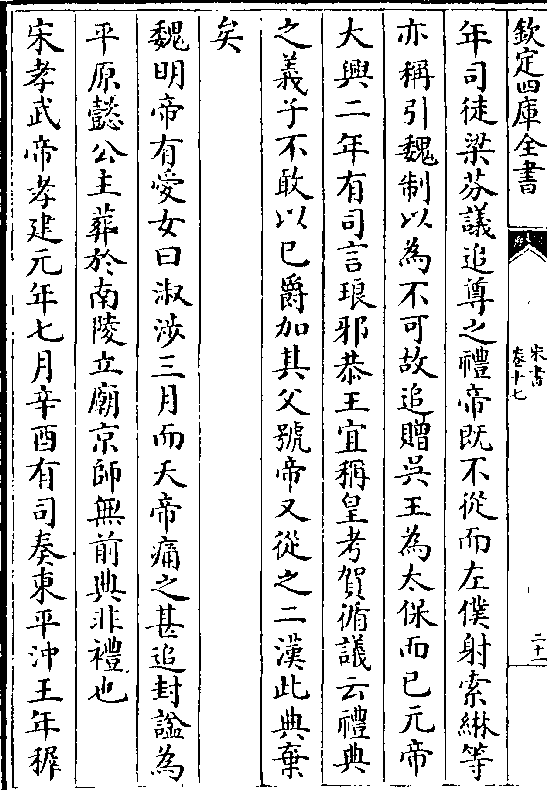 欽定四庫全書
宋書
卷十七
二十一
年司徒梁芬議追尊之禮帝既不從而左僕射索綝等
亦稱引魏制以為不可故追贈吳王為太保而已元帝
大興二年有司言琅邪恭王宜稱皇考賀循議云禮典
之義子不敢以已爵加其父號帝又從之二漢此典棄
矣
魏明帝有愛女曰淑涉三月而夭帝痛之甚追封諡為
平原懿公主葬於南陵立廟京師無前典非禮也
宋孝武帝孝建元年七月辛酉有司奏東平沖王年穉